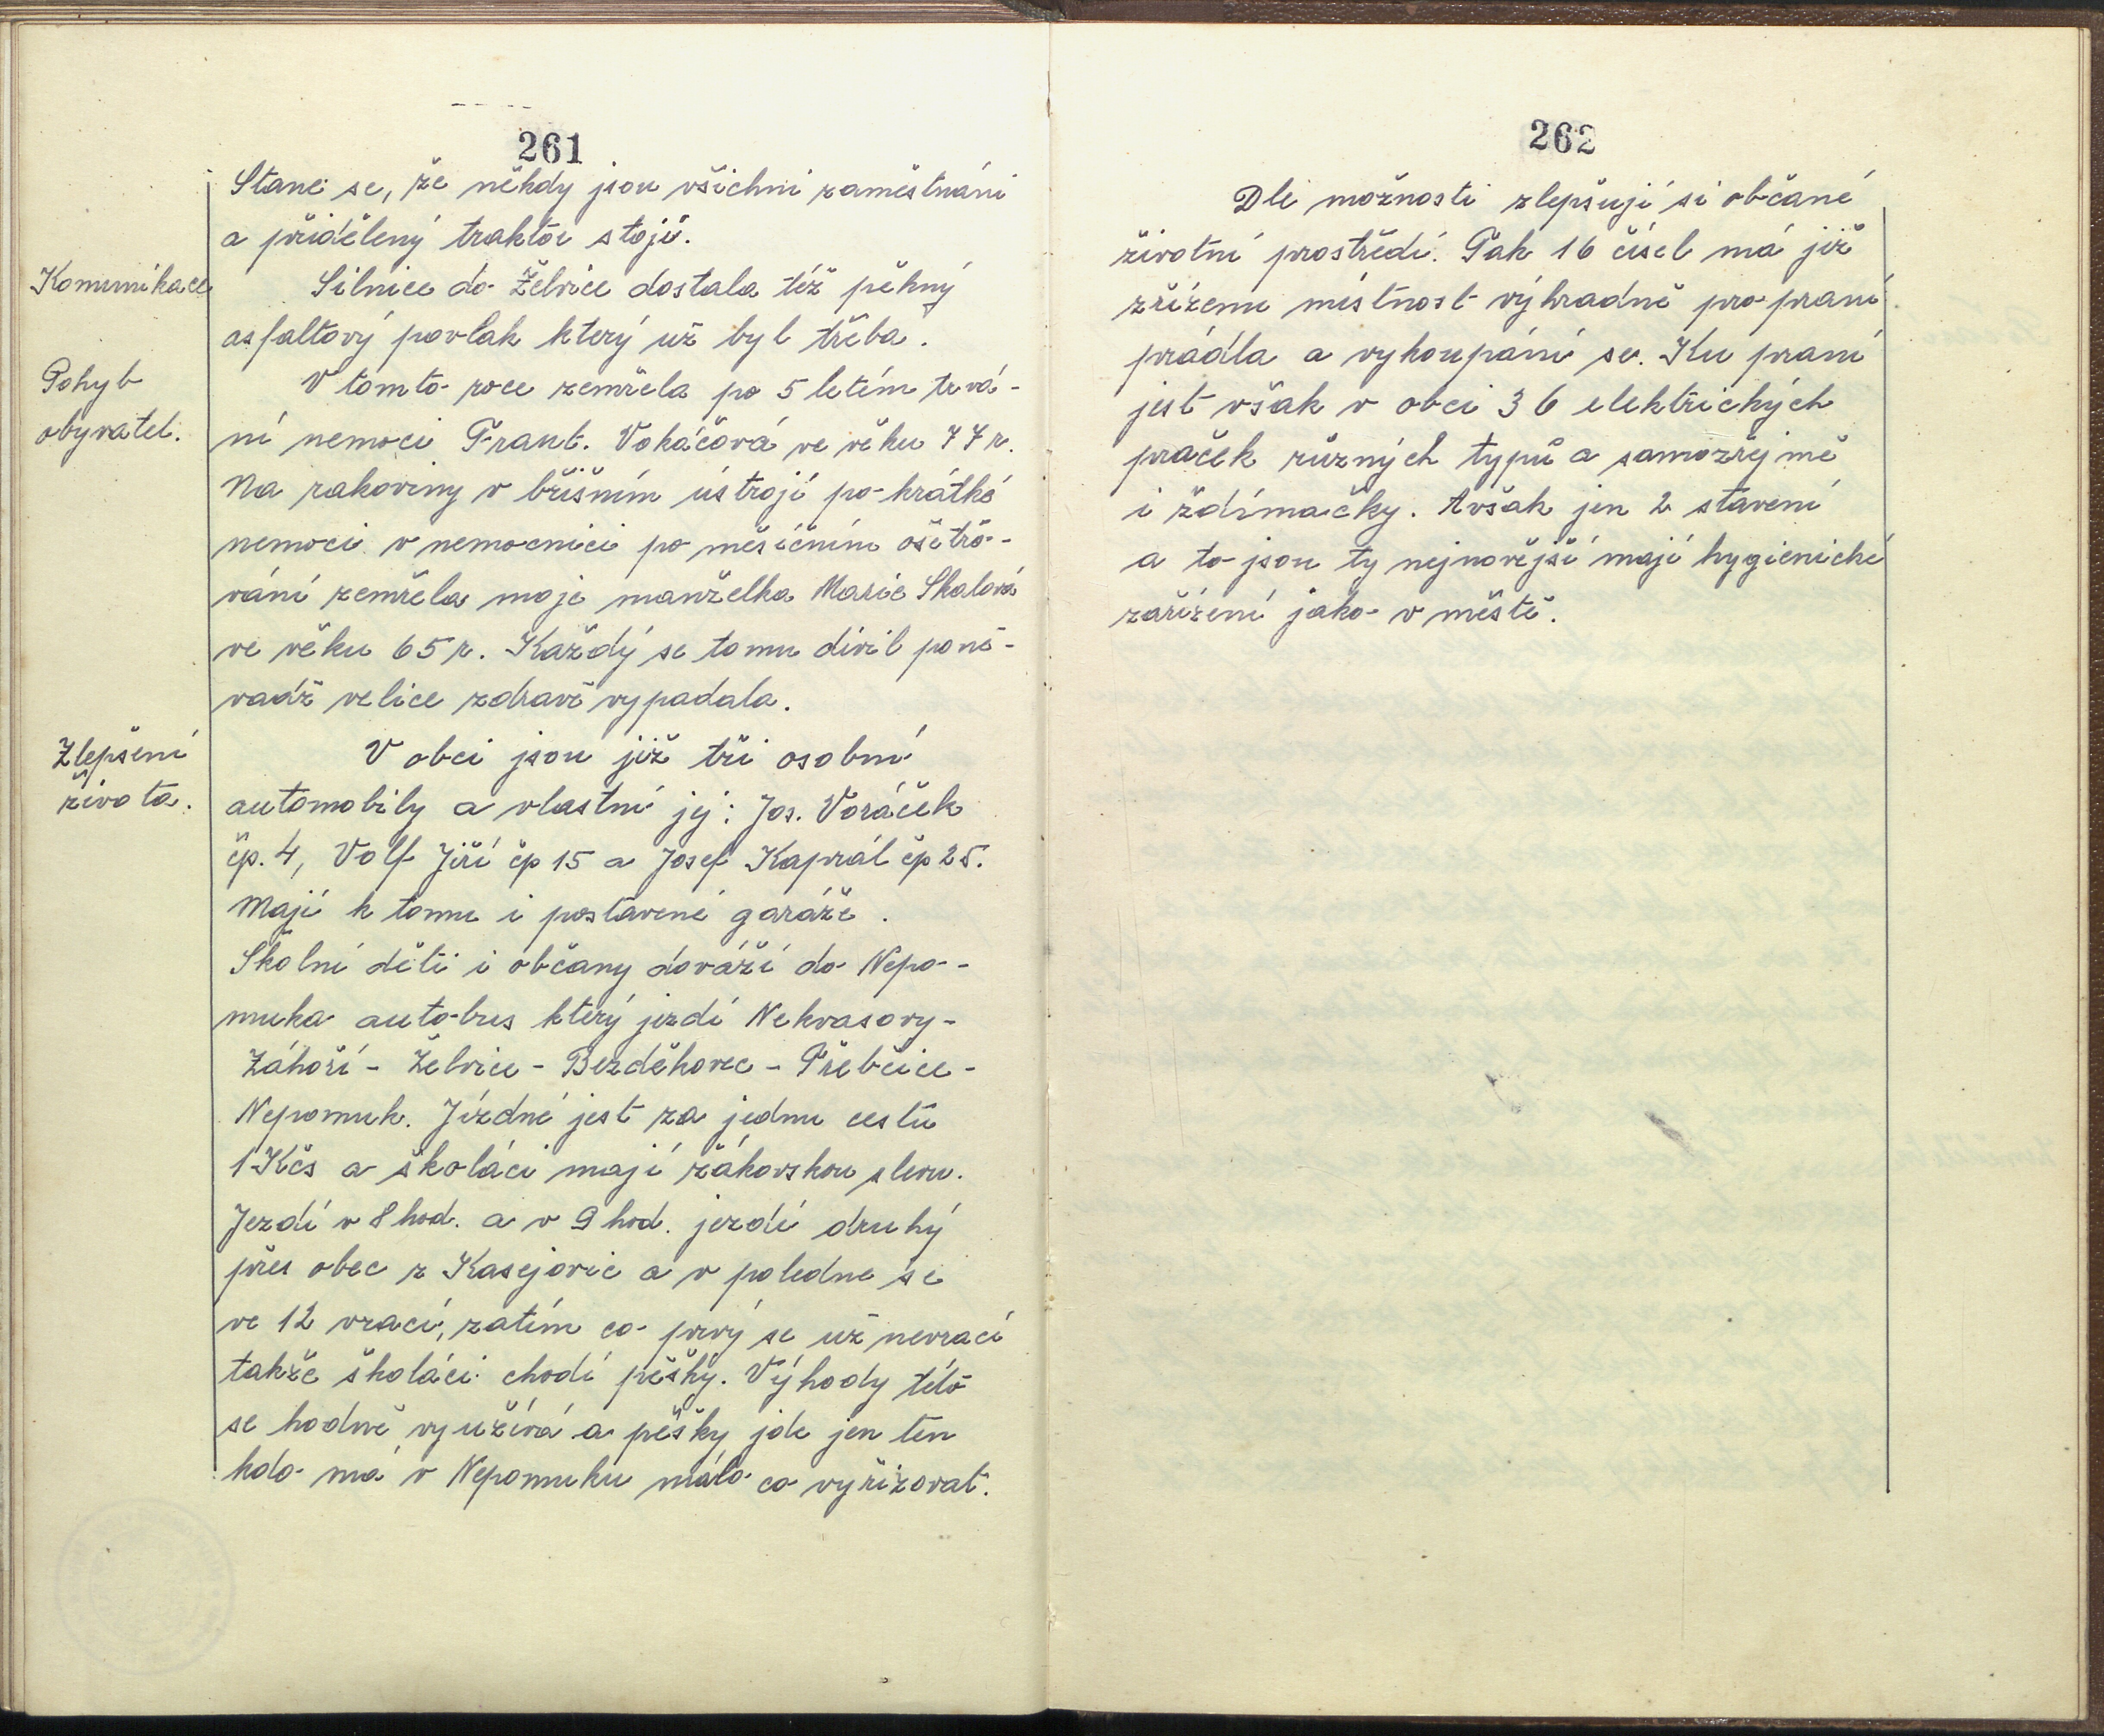 261
Stane se, že někdy jsou všichni zaměstnáni
a přidělený traktor stojí.
Komunikace
Silnice do Želvice dostala též pěkný
asfaltový povlak který už byl třeba.
Pohyb
obyvatel.
V tomto roce zemřela po 5 letém trvá-
ní nemoci Frant. Vokáčová ve věku 77 r.
Na rakoviny v břišním ústrojí po krátké
nemoci v nemocnici po měsíčním ošetřo-
vání zemřela moje manželka Marie Skalová
ve věku 65 r. Každý se tomu divil poně-
vadž velice zdravě vypadala.
Zlepšení
života.
V obci jsou již tři osobní
automobily a vlastní jej: Jos. Voráček
čp. 4, Volf Jiří čp 15 a Josef Kaprál čp 25.
Mají k tomu i postavené garáže.
Školní děti i občany dováží do Nepo-
muka autobus který jezdí Nekvasovy-
Záhoří - Želvice - Bezděkovec - Přebčice -
Nepomuk. Jízdné jest za jednu cestu
1 Kčs a školáci mají žákovskou slevu.
Jezdí v 8 hod. a v 9 hod. jezdí druhý
přes obec z Kasejovic a v poledne se
ve 12 vrací, zatím co prvý se už nevrací
takže školáci chodí pěšky. Výhody této
se hodně využívá a pěšky jde jen ten
kdo má v Nepomuku málo co vyřizovat.
262
Dle možnosti zlepšují si občané
životní prostředí. Tak 16 čísel má již
zřízenu místnost výhradně pro praní
prádla a vykoupání se. Ku praní
jest však v obci 36 elektrických
praček různých typů a samozřejmě
i ždímačky. Avšak jen 2 stavení
a to jsou ty nejnovější mají hygienické
zařízení jako v městě.